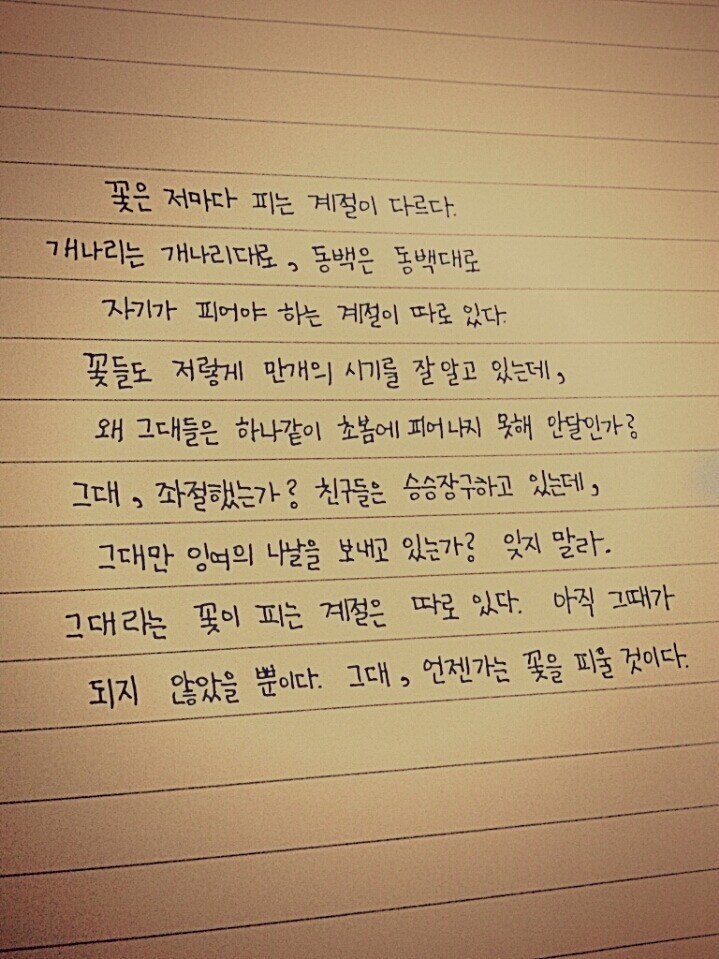 꽃은 저마다 피는 계절이 다르다.
개나리는 개나리대로, 동백은 동백대로
자기가 피어야 하는 계절이 따로 있다.
꽃들도 저렇게 만개의 시기를 잘 알고 있는데,
왜 그대들은 하나같이 초봄에 피어나지 못해 안달인가?
그대, 좌절했는가? 친구들은 승승장구하고 있는데,
그대만 잉여의 나날을 보내고 있는가? 잊지 말라.
그대라는 꽃이 피는 계절은 따로 있다. 아직 그때가
되지 않았을 뿐이다. 그대, 언젠가는 꽃을 피울 것이다.